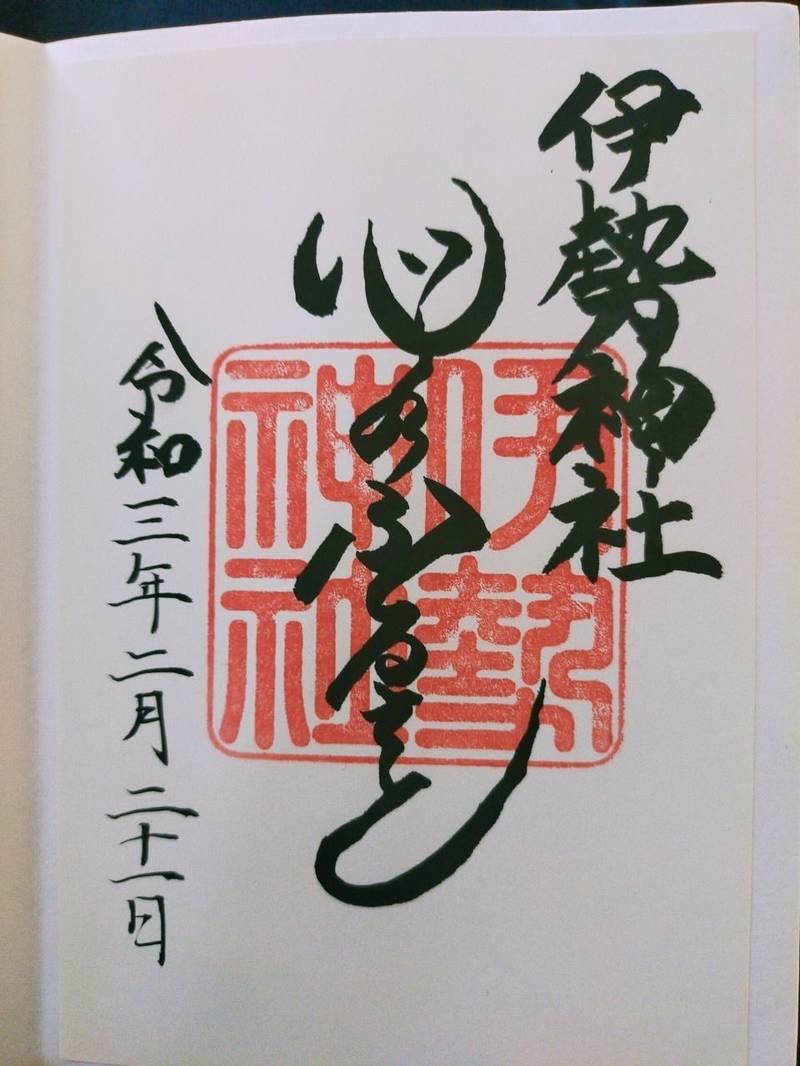 伊勢神社
伊勢
神社
令和三年二月二十一日